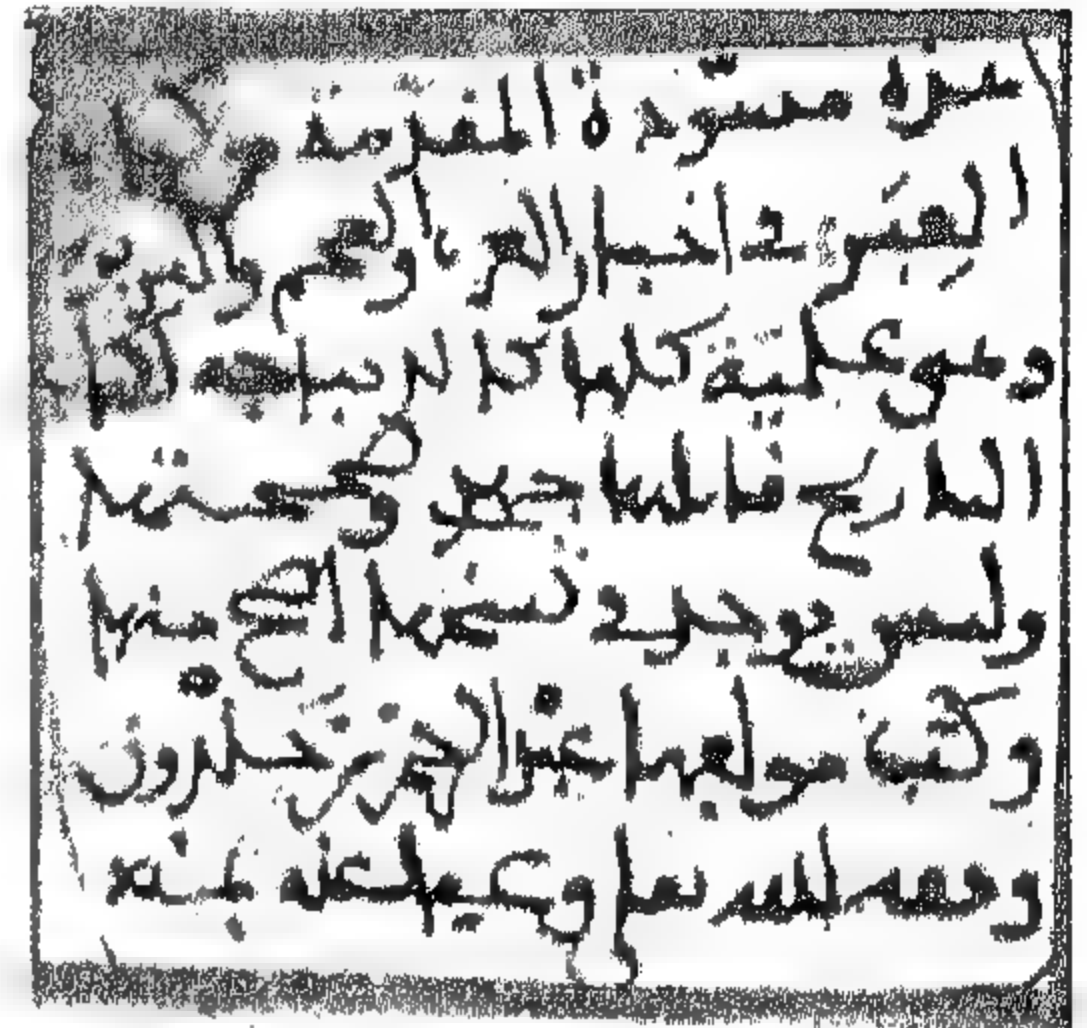 هذه مسوّدة المقدمة من كتاب
العِبَر في اخبار العرب والعجم والبربر
وهي علميّة كلها كالديباجة لكتاب
التاريخ قابلتها جهدي وصححتها
وليس يوجد في نسخها اصح منها
وكتب مولفها عبد الرحمن بن خلدون
وفقه الله تعلى وعفا عنه بمنه